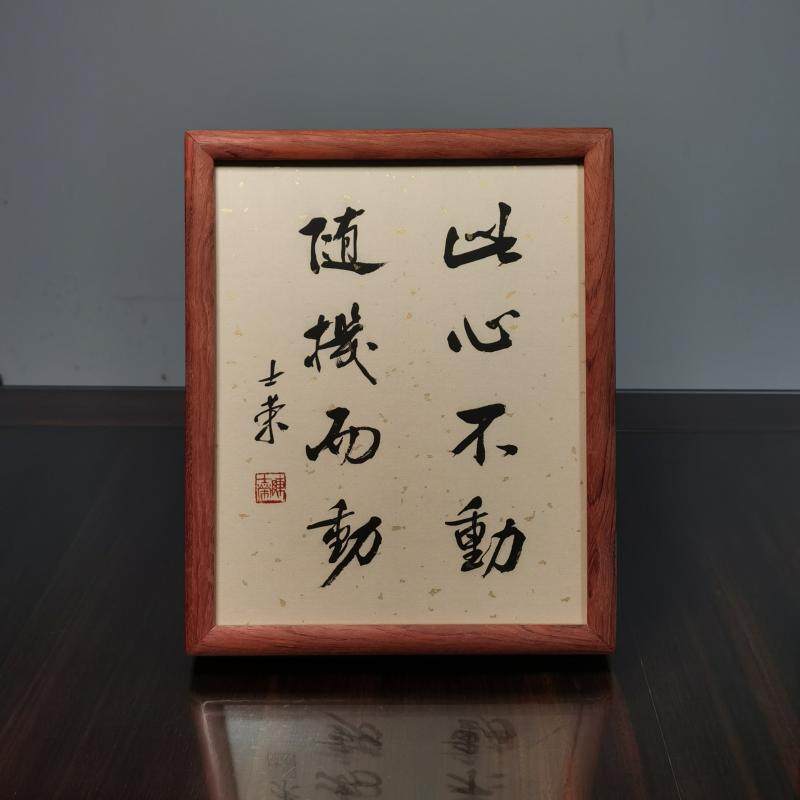 此心不動
随機而動
士荣